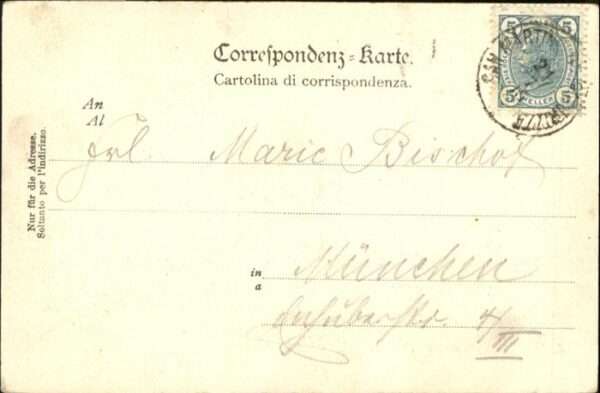 Correspondenz-Karte.
Cartolina di corrispondenza.
5 5
5 HELLER 5
SAN MARTINO
An
Al
Frl. Marie Bischof
Nur für die Adresse.
Soltanto per l'indirizzo.
in
a
München
4/III